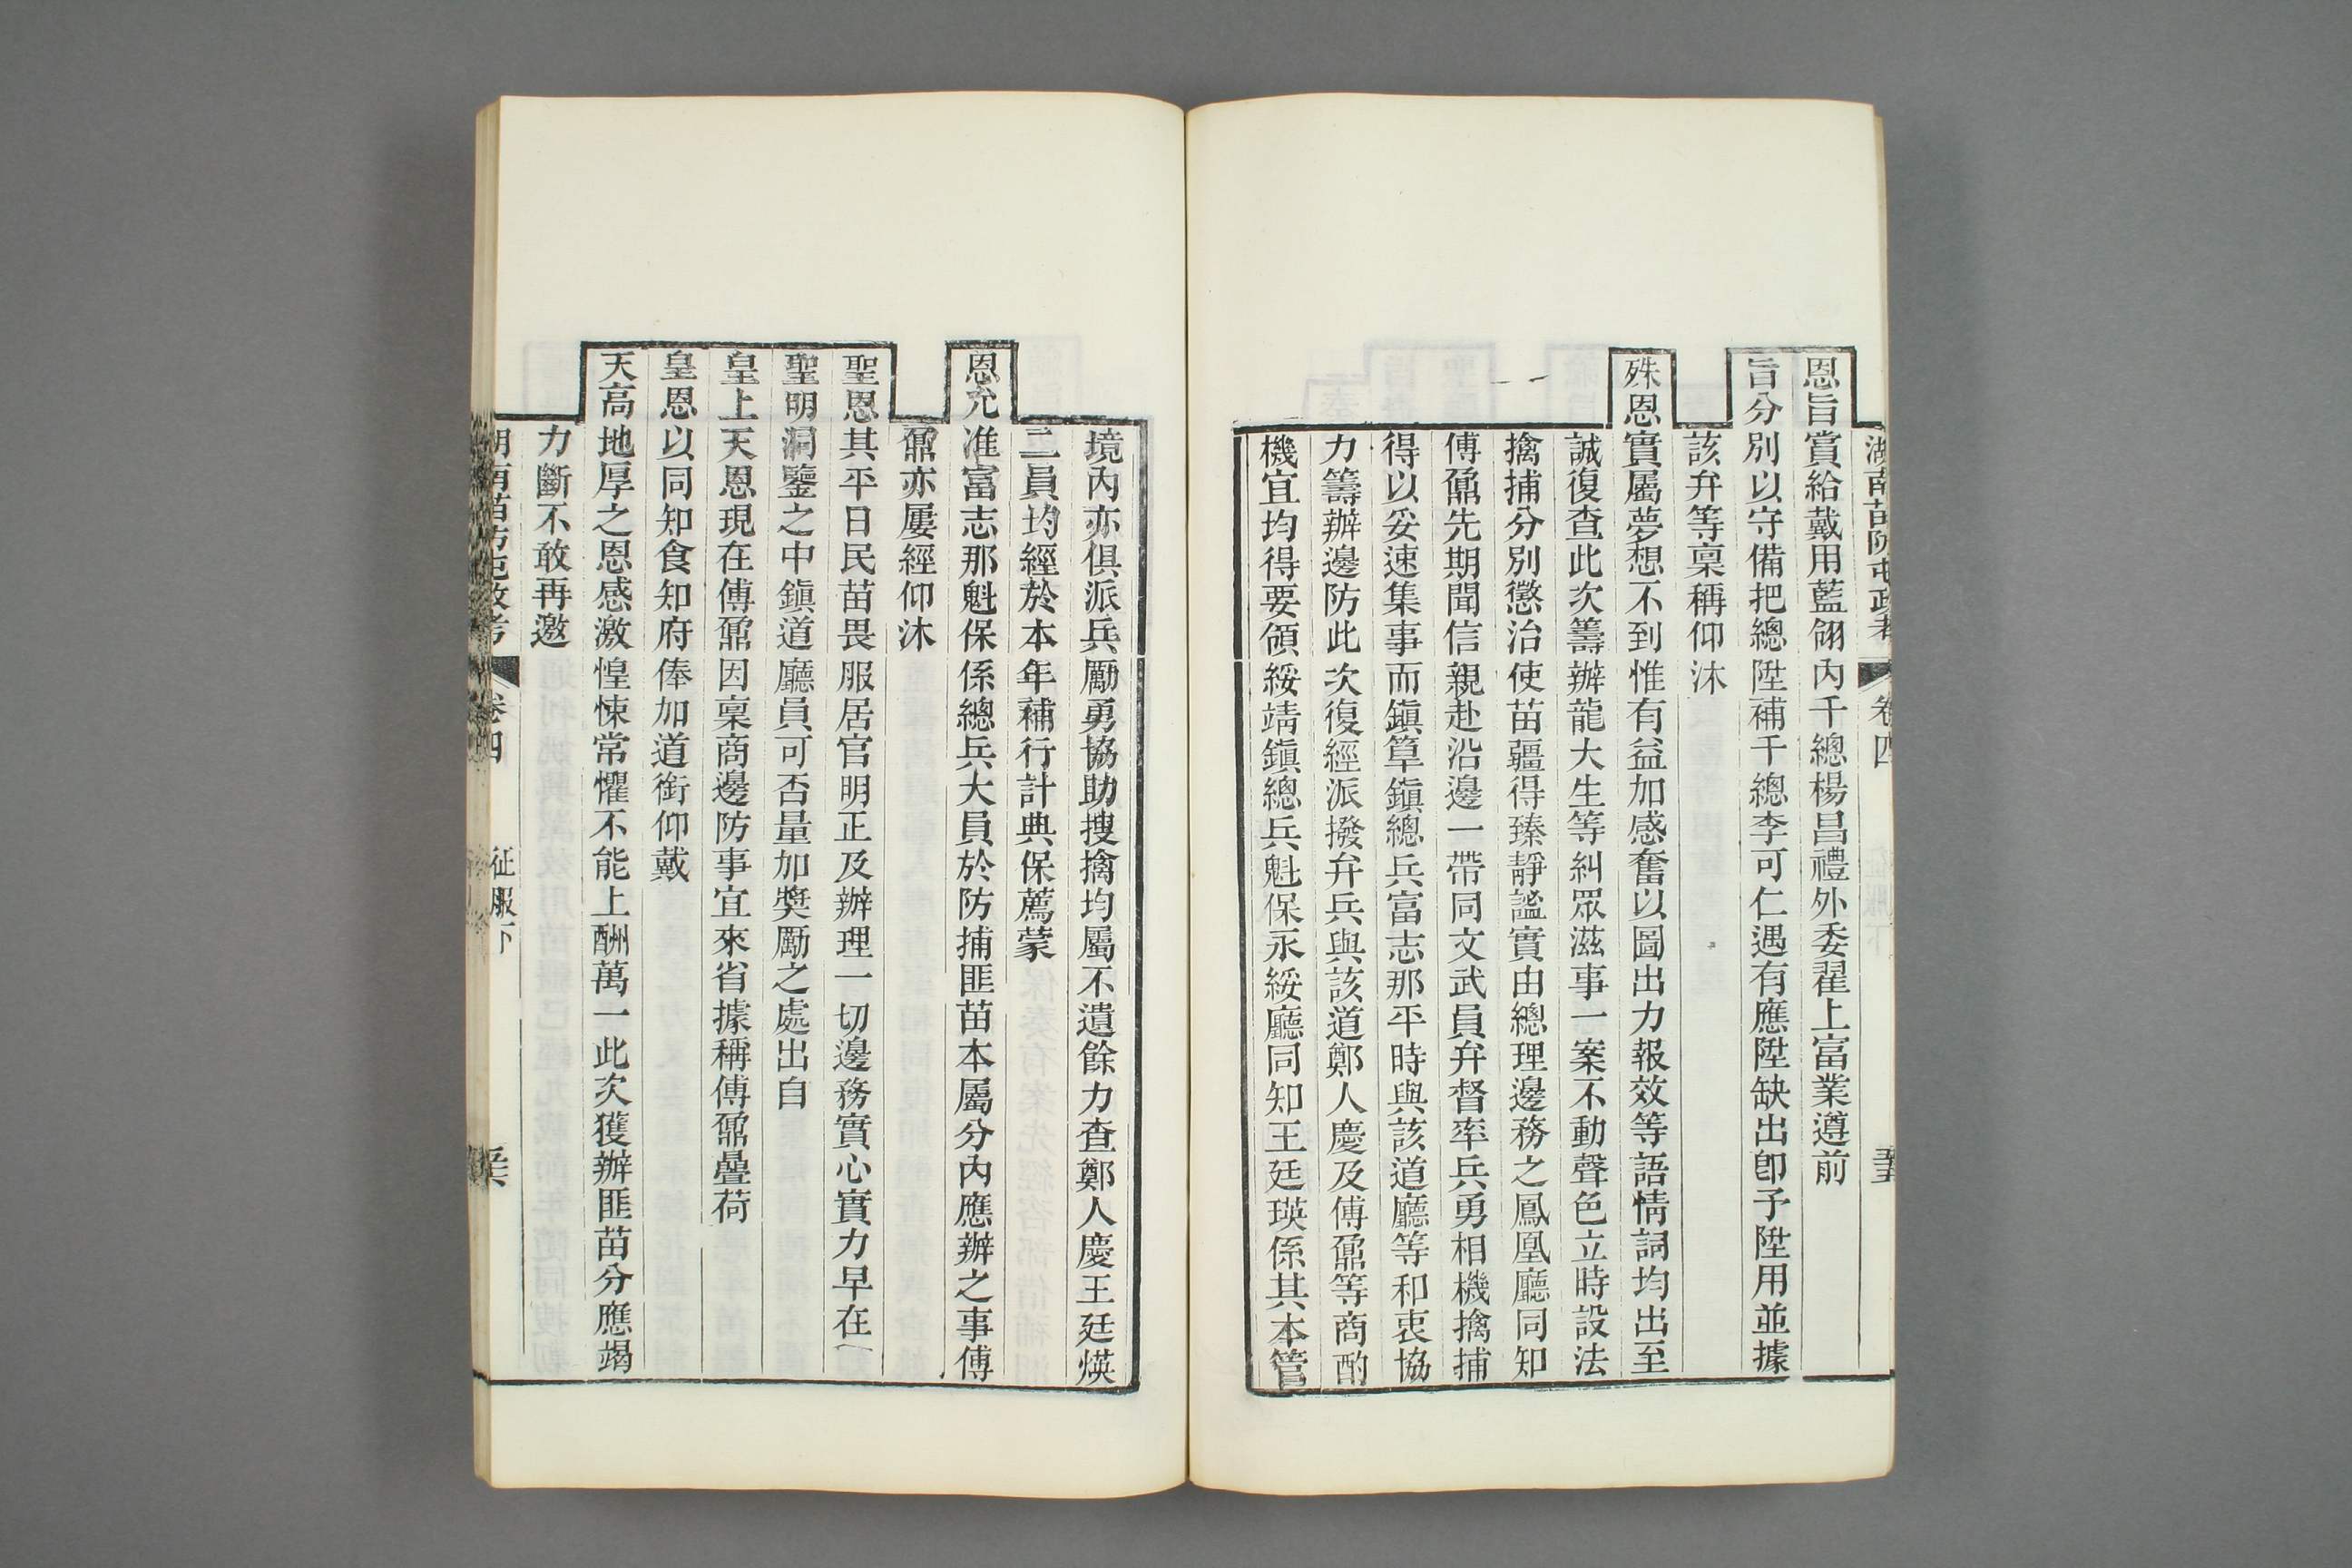 湖南苗防屯政考 卷四 征服下
恩旨賞給戴用藍翎內千總楊昌禮外委翟上富業遵前
旨分別以守備把總陞補千總李可仁遇有應陞缺出卽予陞用並據
該弁等稟稱仰沐
殊恩實屬夢想不到惟有益加感奮以圖出力報效等語情詞均出至
誠復查此次籌辦龍大生等糾眾滋事一案不動聲色立時設法
擒捕分別懲治使苗疆得臻靜謐實由總理邊務之鳳凰廳同知
傅鼐先期聞信親赴沿邊一帶同文武員弁督率兵勇相機擒捕
得以妥速集事而鎭筸鎭總兵富志那平時與該道廳等和衷協
力籌辦邊防此次復經派撥弁兵與該道鄭人慶及傅鼐等商酌
機宜均得要領綏靖鎭總兵魁保永綏廳同知王廷瑛係其本管
境內亦俱派兵勵勇協助搜擒均屬不遺餘力查鄭人慶王廷煐
二員均經於本年補行計典保薦蒙
恩允准富志那魁保係總兵大員於防捕匪苗本屬分內應辦之事傅
鼐亦屢經仰沐
聖恩其平日民苗畏服居官明正及辦理一切邊務實心實力早在
聖明洞鑒之中鎭道廳員可否量加獎勵之處出自
皇上天恩現在傅鼐因稟商邊防事宜來省據稱傅鼐疊荷
皇恩以同知食知府俸加道銜仰戴
天高地厚之恩感激惶悚常懼不能上酬萬一此次獲辦匪苗分應竭
力斷不敢再邀
湖南苗防屯政考 卷四 征服下